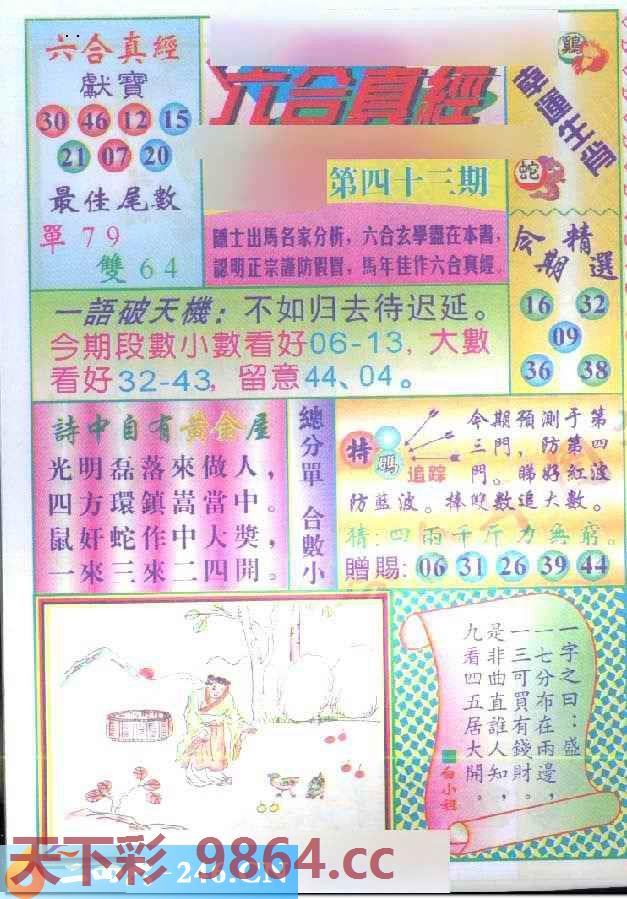 六合真經
獻寶
30 46 12 15
21 07 20
最佳尾數
單 7 9
雙 6 4
六合真經
第四十三期
隱士出馬名家分析，六合玄學盡在本書，
認明正宗謹防假冒，馬年佳作六合真經。
鷄
蛇
今期精選
16 32
09
36 38
一語破天機：不如归去待迟延。
今期段數小數看好06-13，大數
看好32-43，留意44、04。
詩中自有黃金屋
光明磊落來做人，
四方環鎮嵩當中。
鼠奸蛇作中大獎，
一來三來二四開。
總分單 合數小
特碼
追踪
今期預測于第
三門，防第四
門。睇好紅波
防藍波。捧雙數追大數。
猜：四兩千斤力無窮。
贈賜：06 31 26 39 44
一字之曰：盛
一七分布在兩邊，
一三可買有錢財。
是非曲直誰人知，
九看四五居大開。
白小姐
天下彩 9864.cc
246.CN